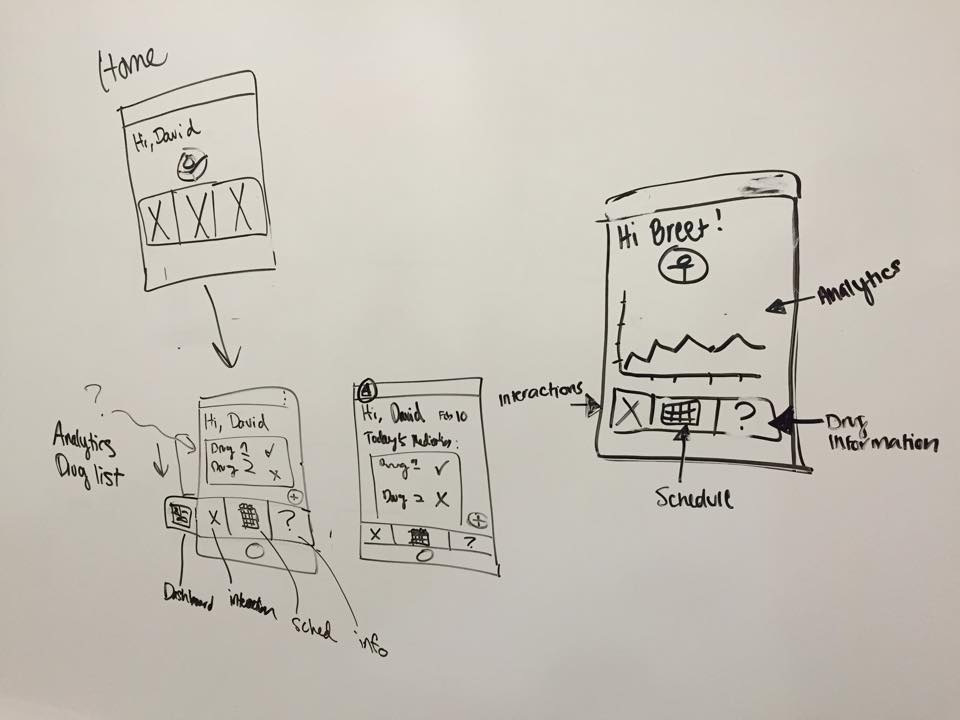 Home
Hi, David
X X X
?
Analytics
Drug list
Hi, David
Drug 1 ✓
Drug 2 X
+
X ?
Dashboard
interaction
sched
info
A
Hi, David Feb 10
Today's Medication:
Drug 1 ✓
Drug 2 X
+
X ?
Hi Breet!
Analytics
Interactions
X ?
Drug
Information
Schedule